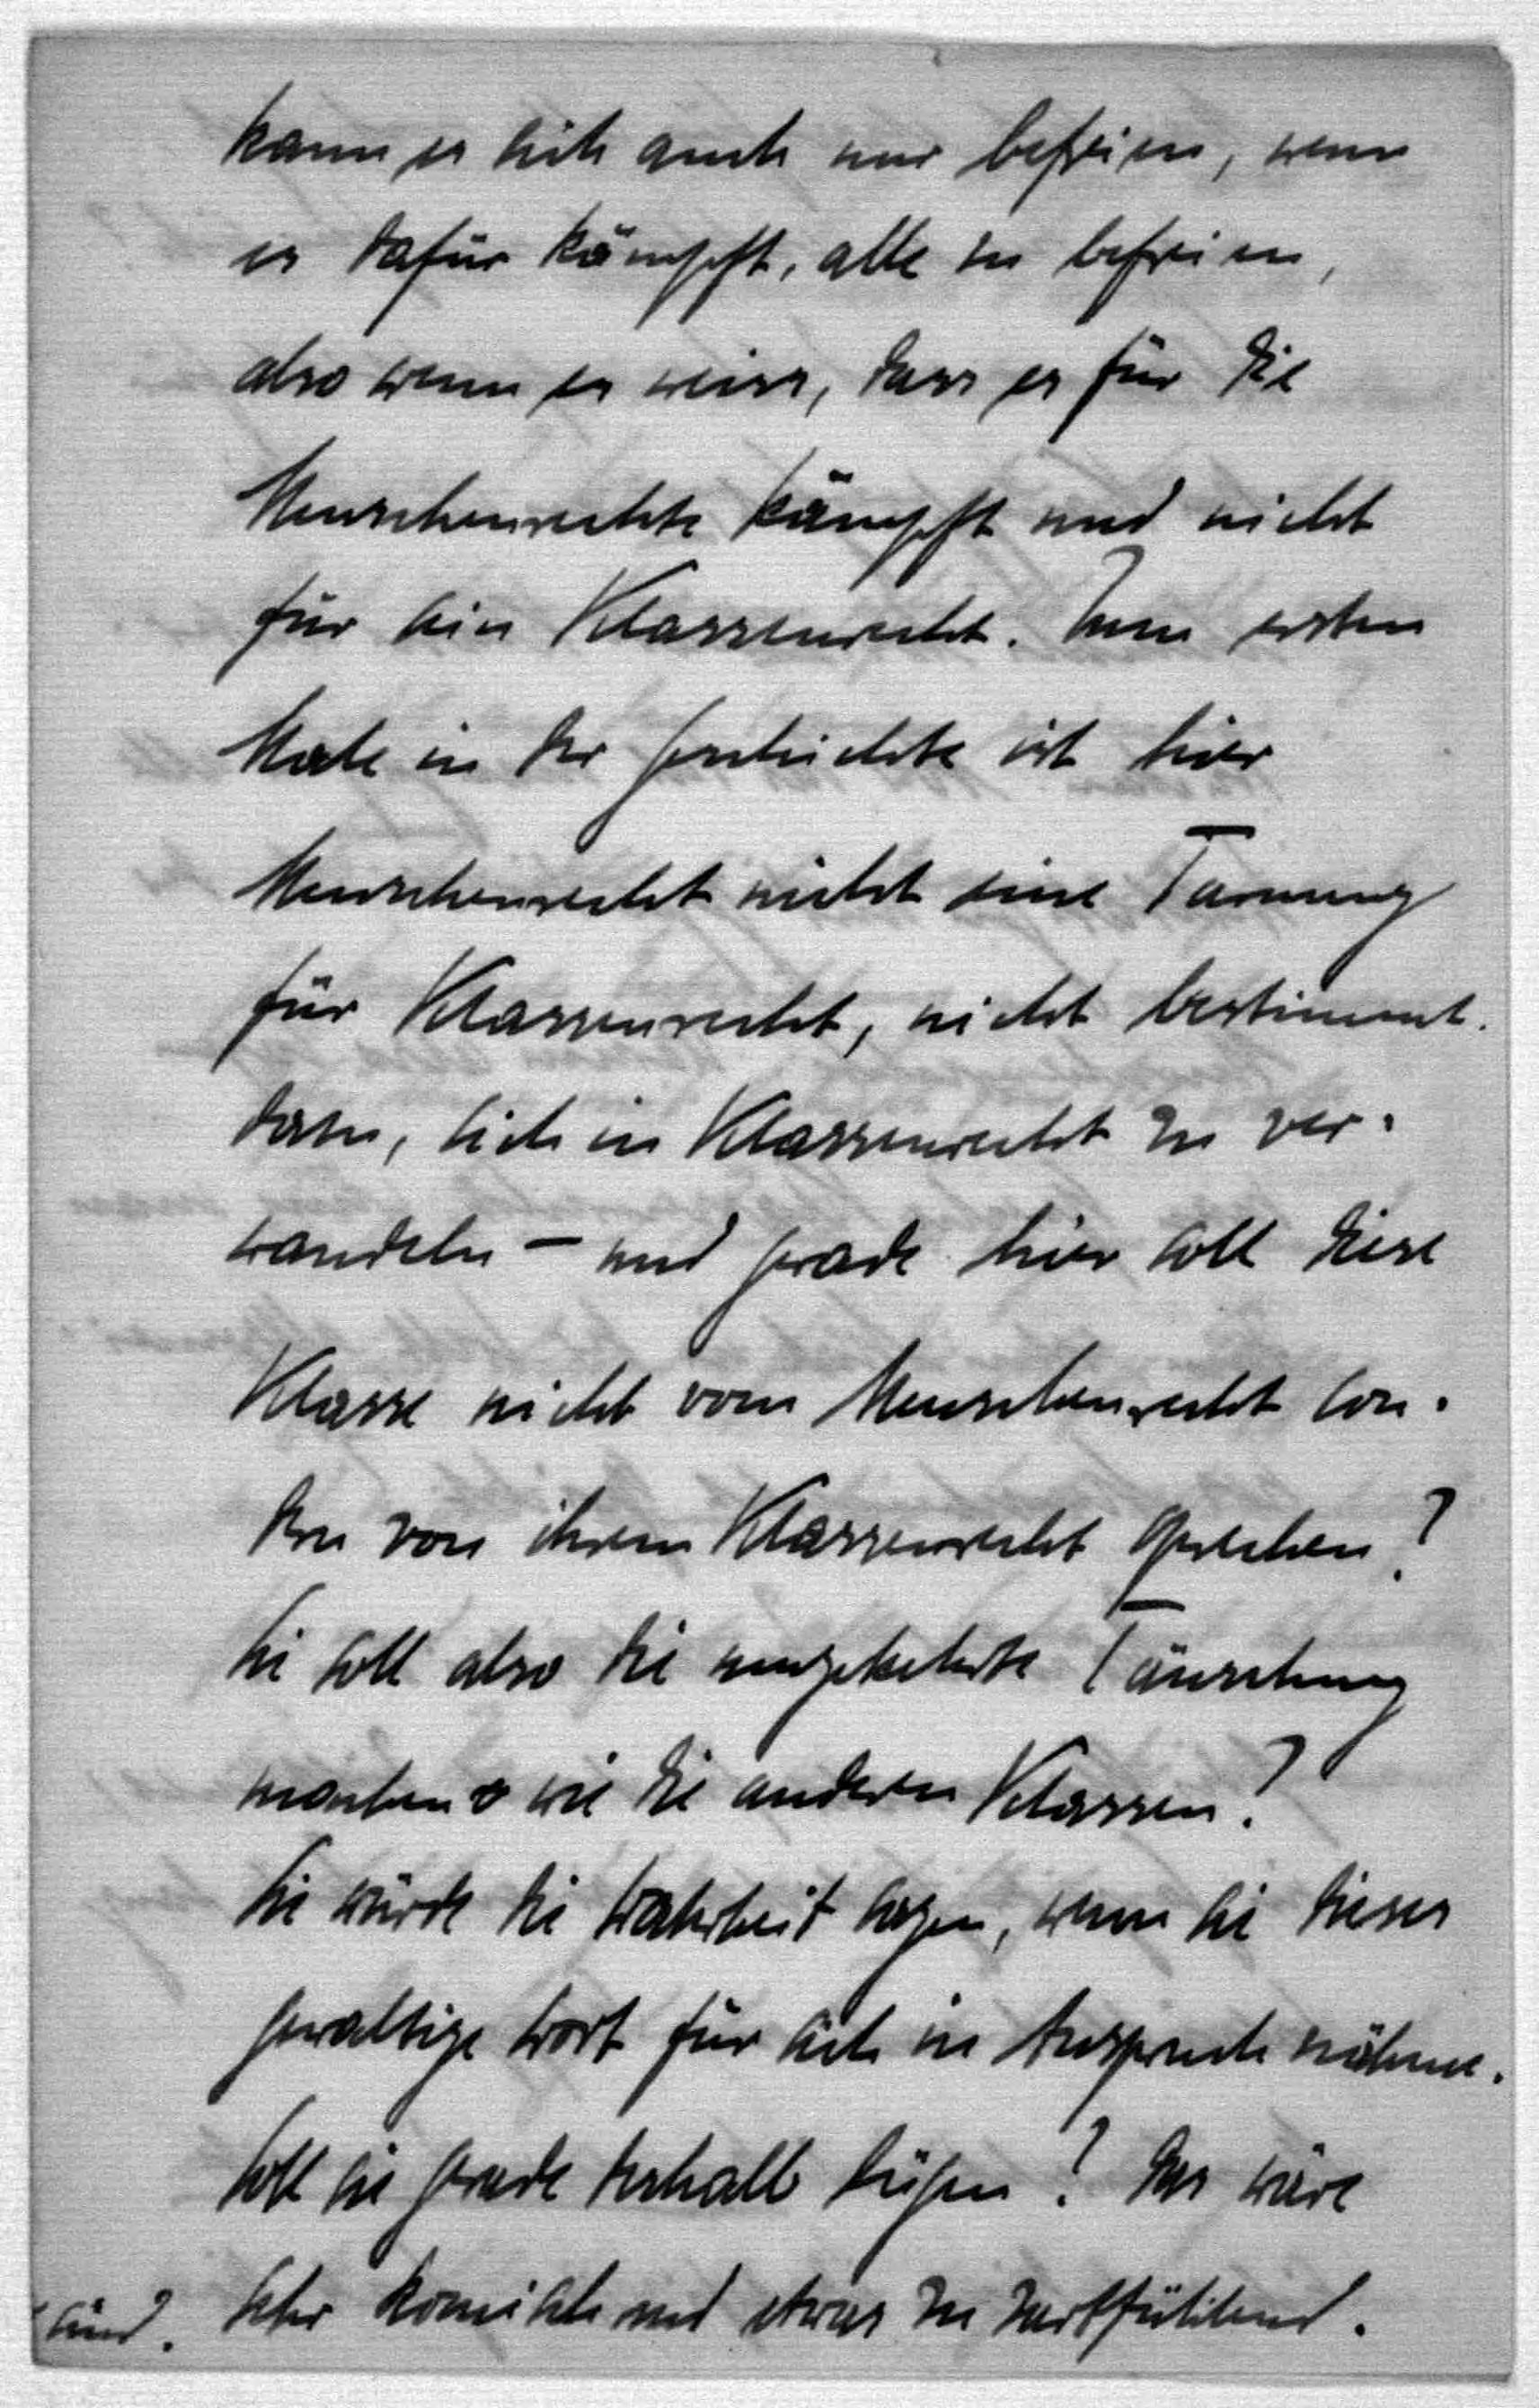 kann er sich auch nur befreien, wenn
er dafür kämpft, alle zu befreien,
also wenn er weiss, dass er für die
Menschenrechte kämpft und nicht
für ein Klassenrecht. Zum ersten
Male in der Geschichte ist hier
Menschenrecht nicht eine Tarnung
für Klassenrecht, nicht bestimmt.
dazu, sich in Klassenrecht zu ver-
wandeln – und gerade hier soll diese
Klasse nicht vom Menschenrecht son-
dern von ihrem Klassenrecht sprechen?
Sie soll also die umgekehrte Täuschung
machen wie die anderen Klassen?
Sie würde die Wahrheit sagen, wenn sie dieses
gewaltige Wort für sich in Anspruch nähme.
Soll sie gerade deshalb lügen? Das wäre
sehr komisch und etwas zu zartfühlend.
sind.